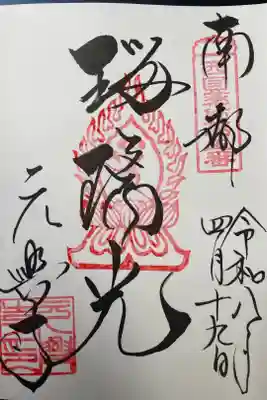 南都
令和八年
四月十九日
瑠璃光
元興寺